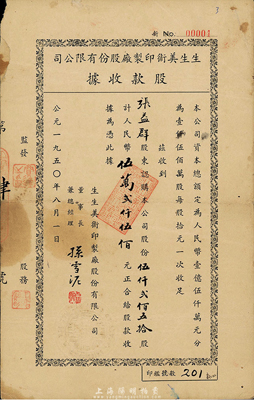 新 No. 00001
司公限有份股廠製印術美生生
據收款股
本公司資本總額定為人民幣壹億伍仟萬元分
為壹仟伍佰萬股每股拾元一次收足
茲收到
張益群股東認購本公司股份伍仟弍佰五拾股
計人民幣伍萬弍仟伍佰元正合給股款收
據為憑此據
生生美術印製廠股份有限公司
董事長
兼總經理 孫雪泥
公元一九五〇年八月一日
監發
股務
印鑑號數 201